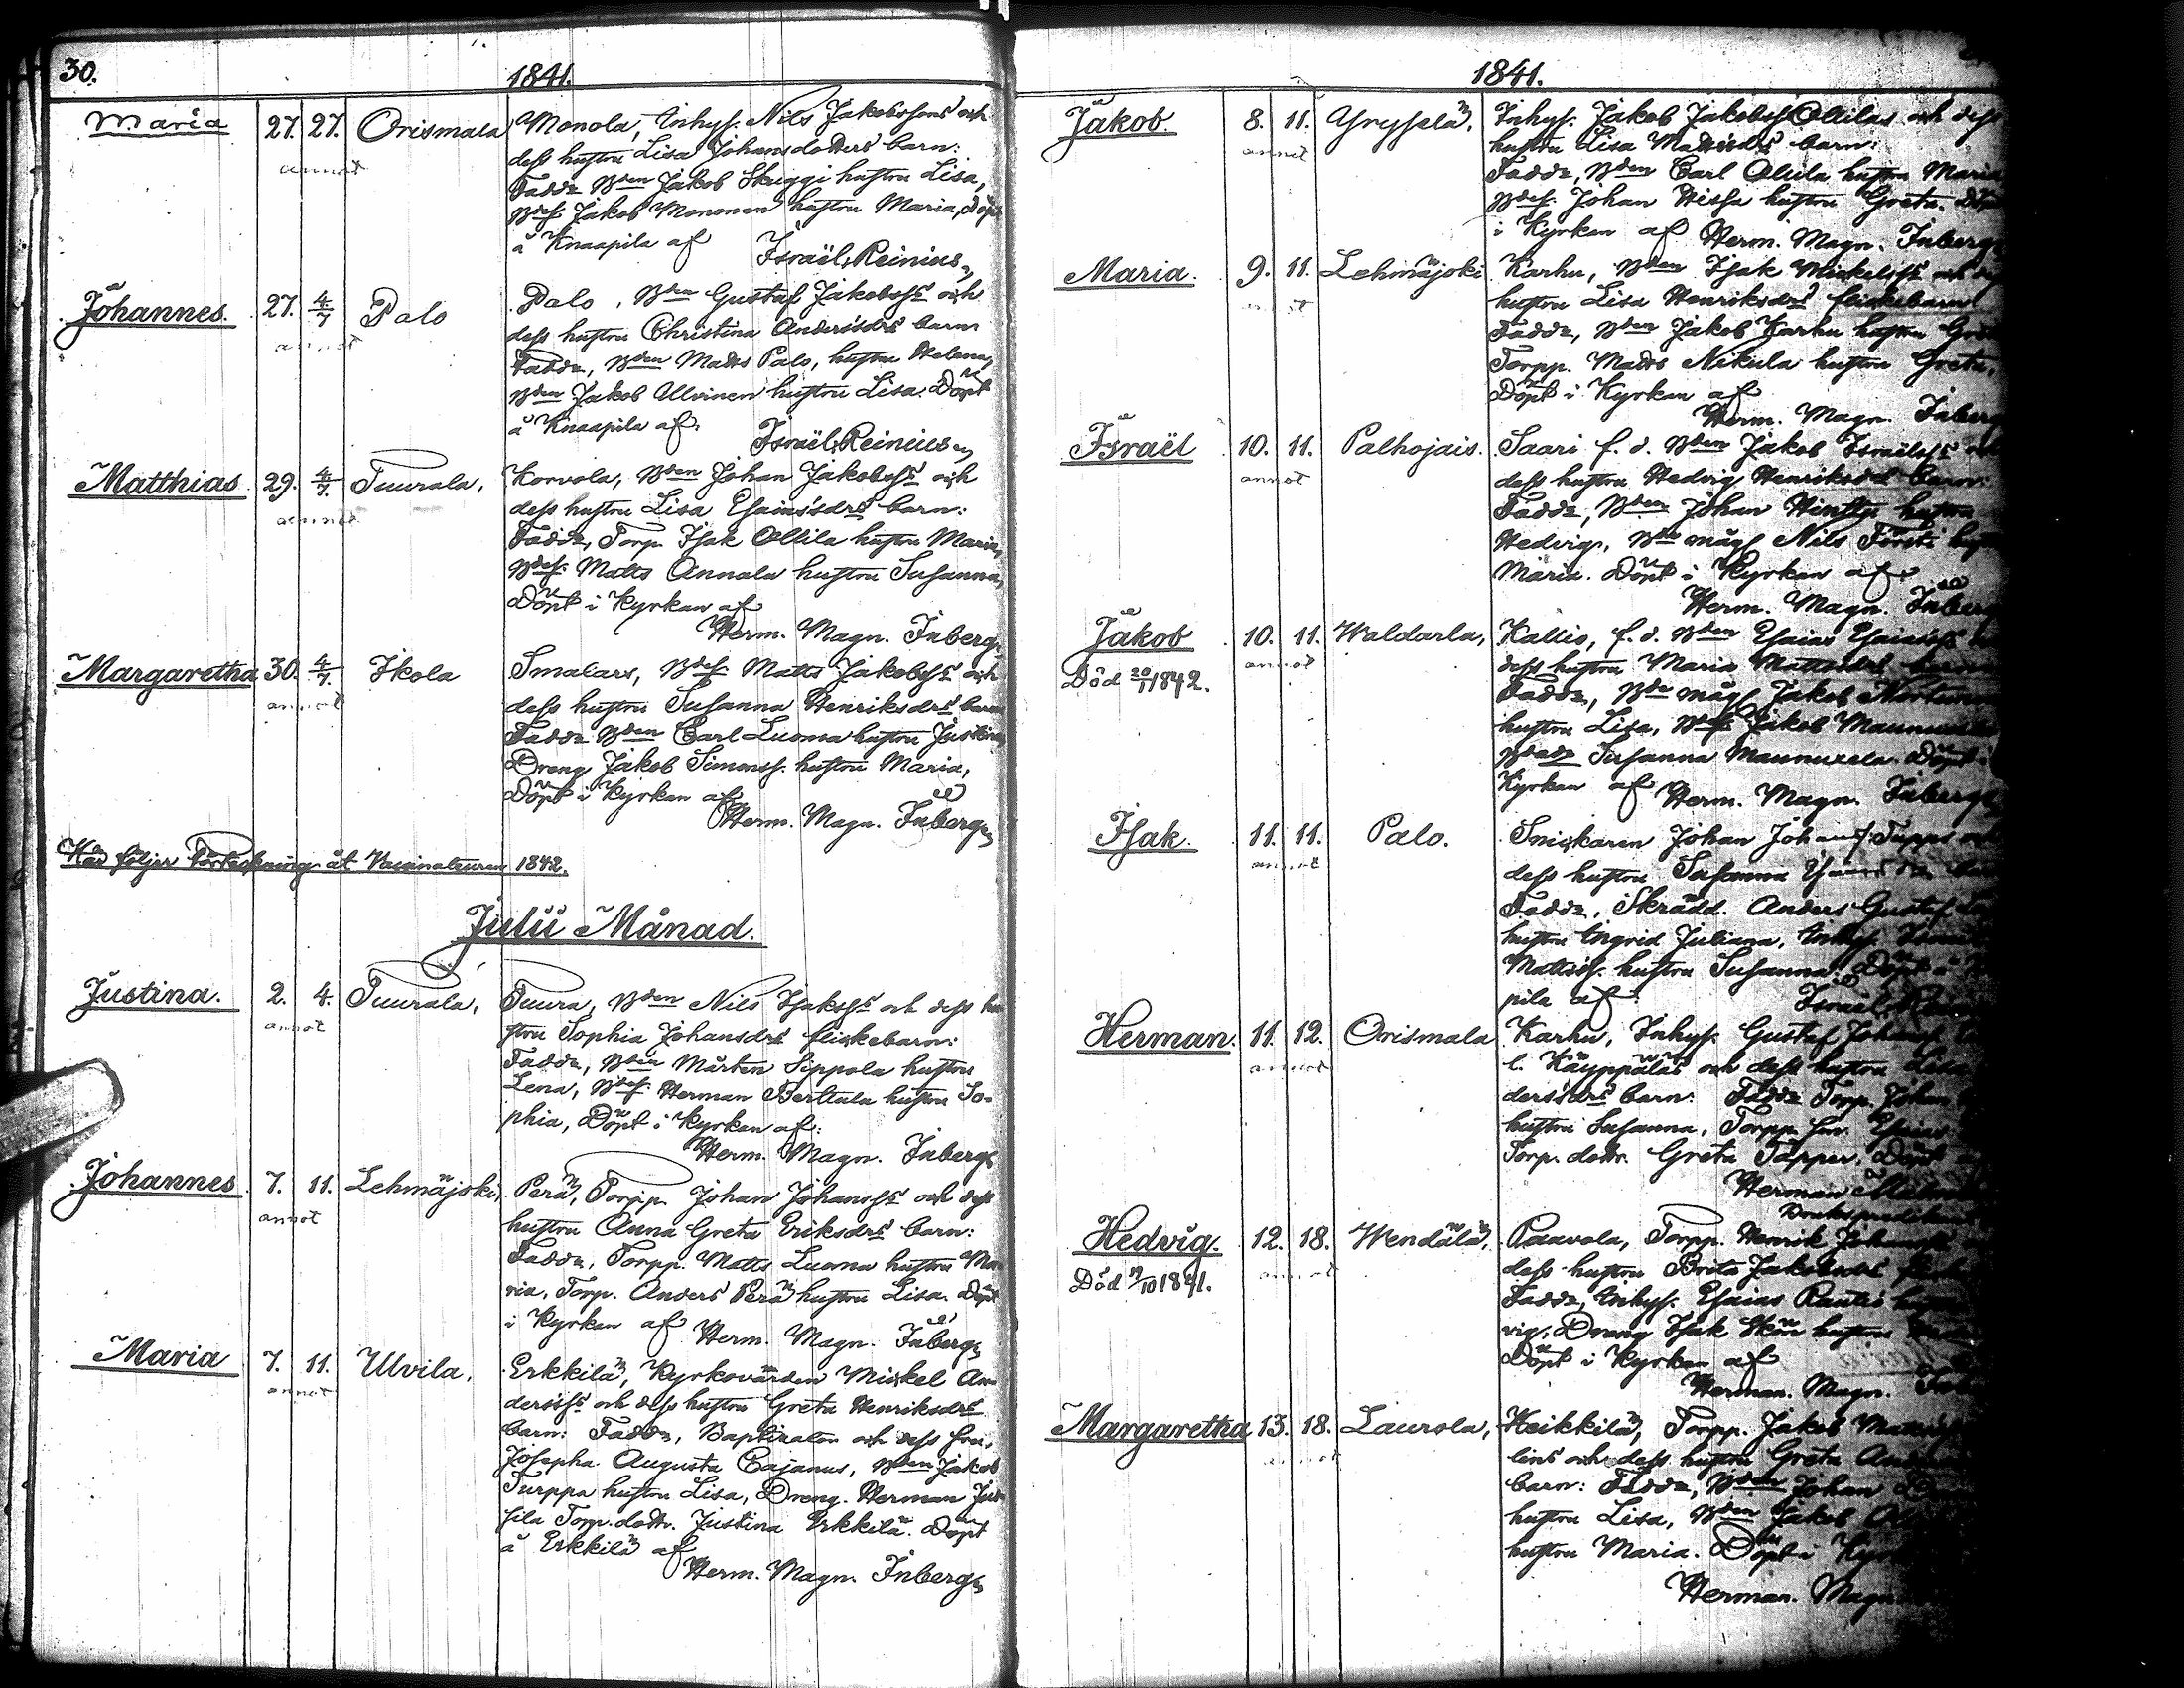 30.
1841.
Maria 27. 27. Orismala Monola, Inhys. Nils Jakobssons och
annot
dess hustru Lisa Johansdotters barn:
Fadd: Bden Jakob Skuggi hustru Lisa,
Bdes. Jakob Mononen hustru Maria, Döpt
å Knaapila af Israël Reinius
Johannes. 27. 4/7 Palo Palo, Bden Gustaf Jakobss och
annot
dess hustru Christina Andersdrs barn
Fadd:, Bden Matts Palo, hustru Helena,
Bden Jakob Ulvinen hustru Lisa. Döpt
å Knaapila af: Israël Reinius
Matthias 29. 4/7. Tuurala, Korvola, Bden Johan Jakobss och
annot
dess hustru Lisa Esaiæsdrs barn:
Fadd:, Torp. Isak Ollila hustru Maria,
Bdes. Matts Annala hustru Susanna,
Döpt i Kyrkan af
Herm. Magn. Inberg.
Margaretha 30. 4/7. Ikola Smalars, Bdes. Matts Jakobss och
annot
dess hustru Susanna Henriksdrs barn
Fadd: Bden Carl Luoma hustru Justina
Dreng Jakob Simonss. hustru Maria,
Döpt i Kyrkan af
Herm. Magn. Inberg
Här följer Förteckning åt Vaccinateuren 1842.
Julii Månad.
Justina. 2. 4. Tuurala, Tuura, Bden Nils Isakss och dess hu
annot
stru Sophia Johansdrs flickebarn:
Fadd:, Bden Mårten Sippola hustru
Lena, Bdes. Herman Perttula hustru So-
phia, Döpt i Kyrkan af:
Herm. Magn. Inberg
Johannes 7. 11. Lehmäjoki, Perä, Torpp. Johan Johanss och dess
annot
hustru Anna Greta Eriksdrs barn:
Fadd:, Torpp. Matts Luoma hustru Ma
ria, Torp. Anders Perä hustru Lisa. Döpt
i Kyrkan af Herm. Magn. Inberg
Maria 7. 11. Ulvila. Erkkilä, Kyrkovärden Mickel An-
annot
derss och dess hustru Greta Henriksdrs
barn: Fadd:, Baptizator och dess fru,
Josepha Augusta Cajanus, Bden Jakob
Turppa hustru Lisa, Dreng. Herman Jus
sila Torp. dottr. Justina Erkkilä. Döpt
å Erkkilä af
Herm. Magn. Inberg
1841.
Jakob. 8. 11. Yryselä, Inhys. Jakob Jakobss Ollilas och dess
annot
hustru Lisa Mattsdrs barn:
Fadd:, Bden Carl Olula hustru Maria
Bdes. Johan Hissa hustru Greta. Döpt
i Kyrkan af Herm. Magn. Inberg
Maria. 9. 11. Lehmäjoki Karhu, Bden Isak Mickelss och
hustru Lisa Henriksdrs flickebarn
Fadd:, Bden Jakob Karhu hustru
Torpp. Matts Nikula hustru Greta,
Döpt i Kyrkan af
Herm. Magn. Inberg
Israël 10. 11. Palhojais. Saari f. d. Bden Jakob Israëlss
annot
dess hustru Hedvig Henriksdrs barn:
Fadd:, Bden Johan Hintsa hustru
Hedvig, Bde mågs Nils Försti
Maria. Döpt i Kyrkan af
Herm. Magn. Inberg
Jakob 10. 11. Waldarla, Kallio, f. d. Bden Esaias Esaiass
annot
Död 20/1 1842. dess hustru Maria Mattsdrs
Fadd:, Bde mågs Jakob
hustru Lisa, Bdes. Jakob
Susanna Maunuxela. Döpt i
Kyrkan af Herm. Magn. Inberg
Isak. 11. 11. Palo. Snickaren Johan Johanss Tupps
annot
dess hustru Susanna
Fadd:, Skrädd. Anders Gustaf
hustru Ingrid Juliana, Inhys.
Mattss. hustru Susanna. Döpt å
pila af: Israël
Herman. 11. 12. Orismala Karhu, Inhys. Gustaf Johanss
annot
l. Käyppäläs och dess hustru
dersdrs barn: Fadd: Torp. Johan
hustru Susanna, Torpp. son. Esaias
Torp. dottr. Greta Tapper. Döpt
Herman
Hedvig. 12. 18. Wendälä, Paavola, Torpp. Henrik
annot
Död 19/10 1841. dess hustru Brita Jakobsdrs
Fadd:, Inhys. Esaias Rautio
vig, Dreng Isak Skön hustru
Döpt i Kyrkan af
Herman. Magn.
Margaretha 13. 18. Laurola, Heikkilä, Torpp. Jakob
annot
lins och dess hustru Greta
barn: Fadd:, Bden Johan
hustru Lisa, Bden Jakob
hustru Maria. Döpt i
Herman. Magn.